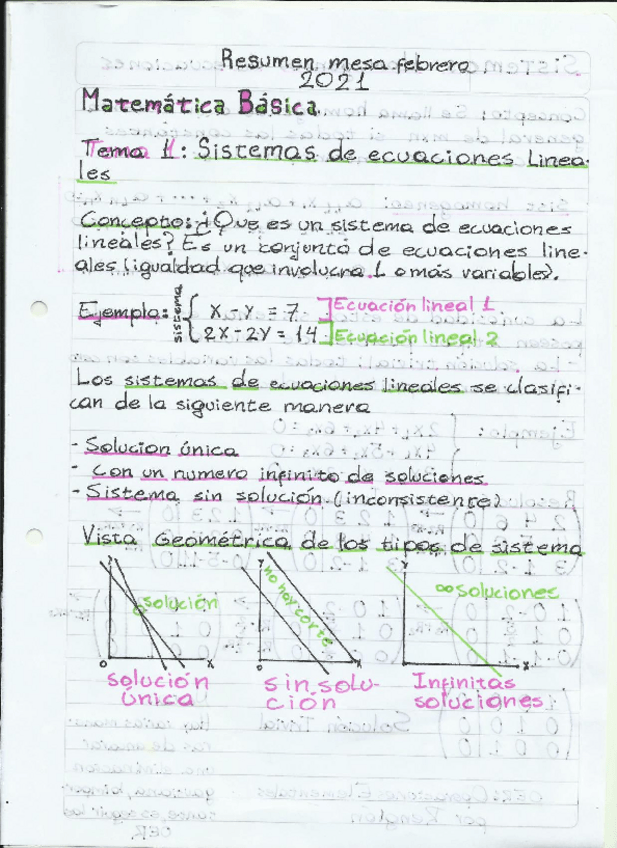 Resumen mesa febrero
2021
Matemática Básica.
Tema 1: Sistemas de ecuaciones Linea-
les
Concepto: ¿Que es un sistema de ecuaciones
lineales? Es un conjunto de ecuaciones line-
ales (igualdad que involucra 1 o más variables).
Ejemplo: sistema { X - Y = 7 ] Ecuación lineal 1
2X - 2Y = 14 ] Ecuación lineal 2
Los sistemas de ecuaciones lineales se clasifi-
can de la siguiente manera
- Solucion única
- Con un numero infinito de soluciones.
- Sistema sin solución (inconsistente)
Vista Geométrica de los tipos de sistema
Y solución 0 X
Y no hay corte 0 X
Y ∞ soluciones X
solución
única
sin solu-
ción
Infinitas
soluciones